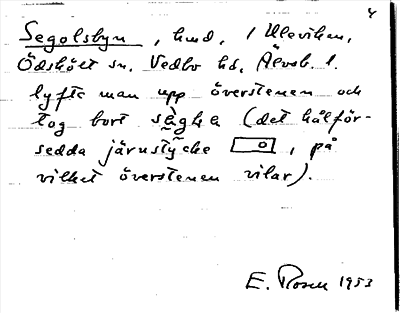 4
Segolsbyn, hmd, i Uleviken,
Ödskölt sn. Vedbo hd, Älvsb. l.
lyfte man upp överstenen och
tog bort seghe (det hålför-
sedda järnstycke , på
vilket överstenen vilar).
E. Rosen 1953